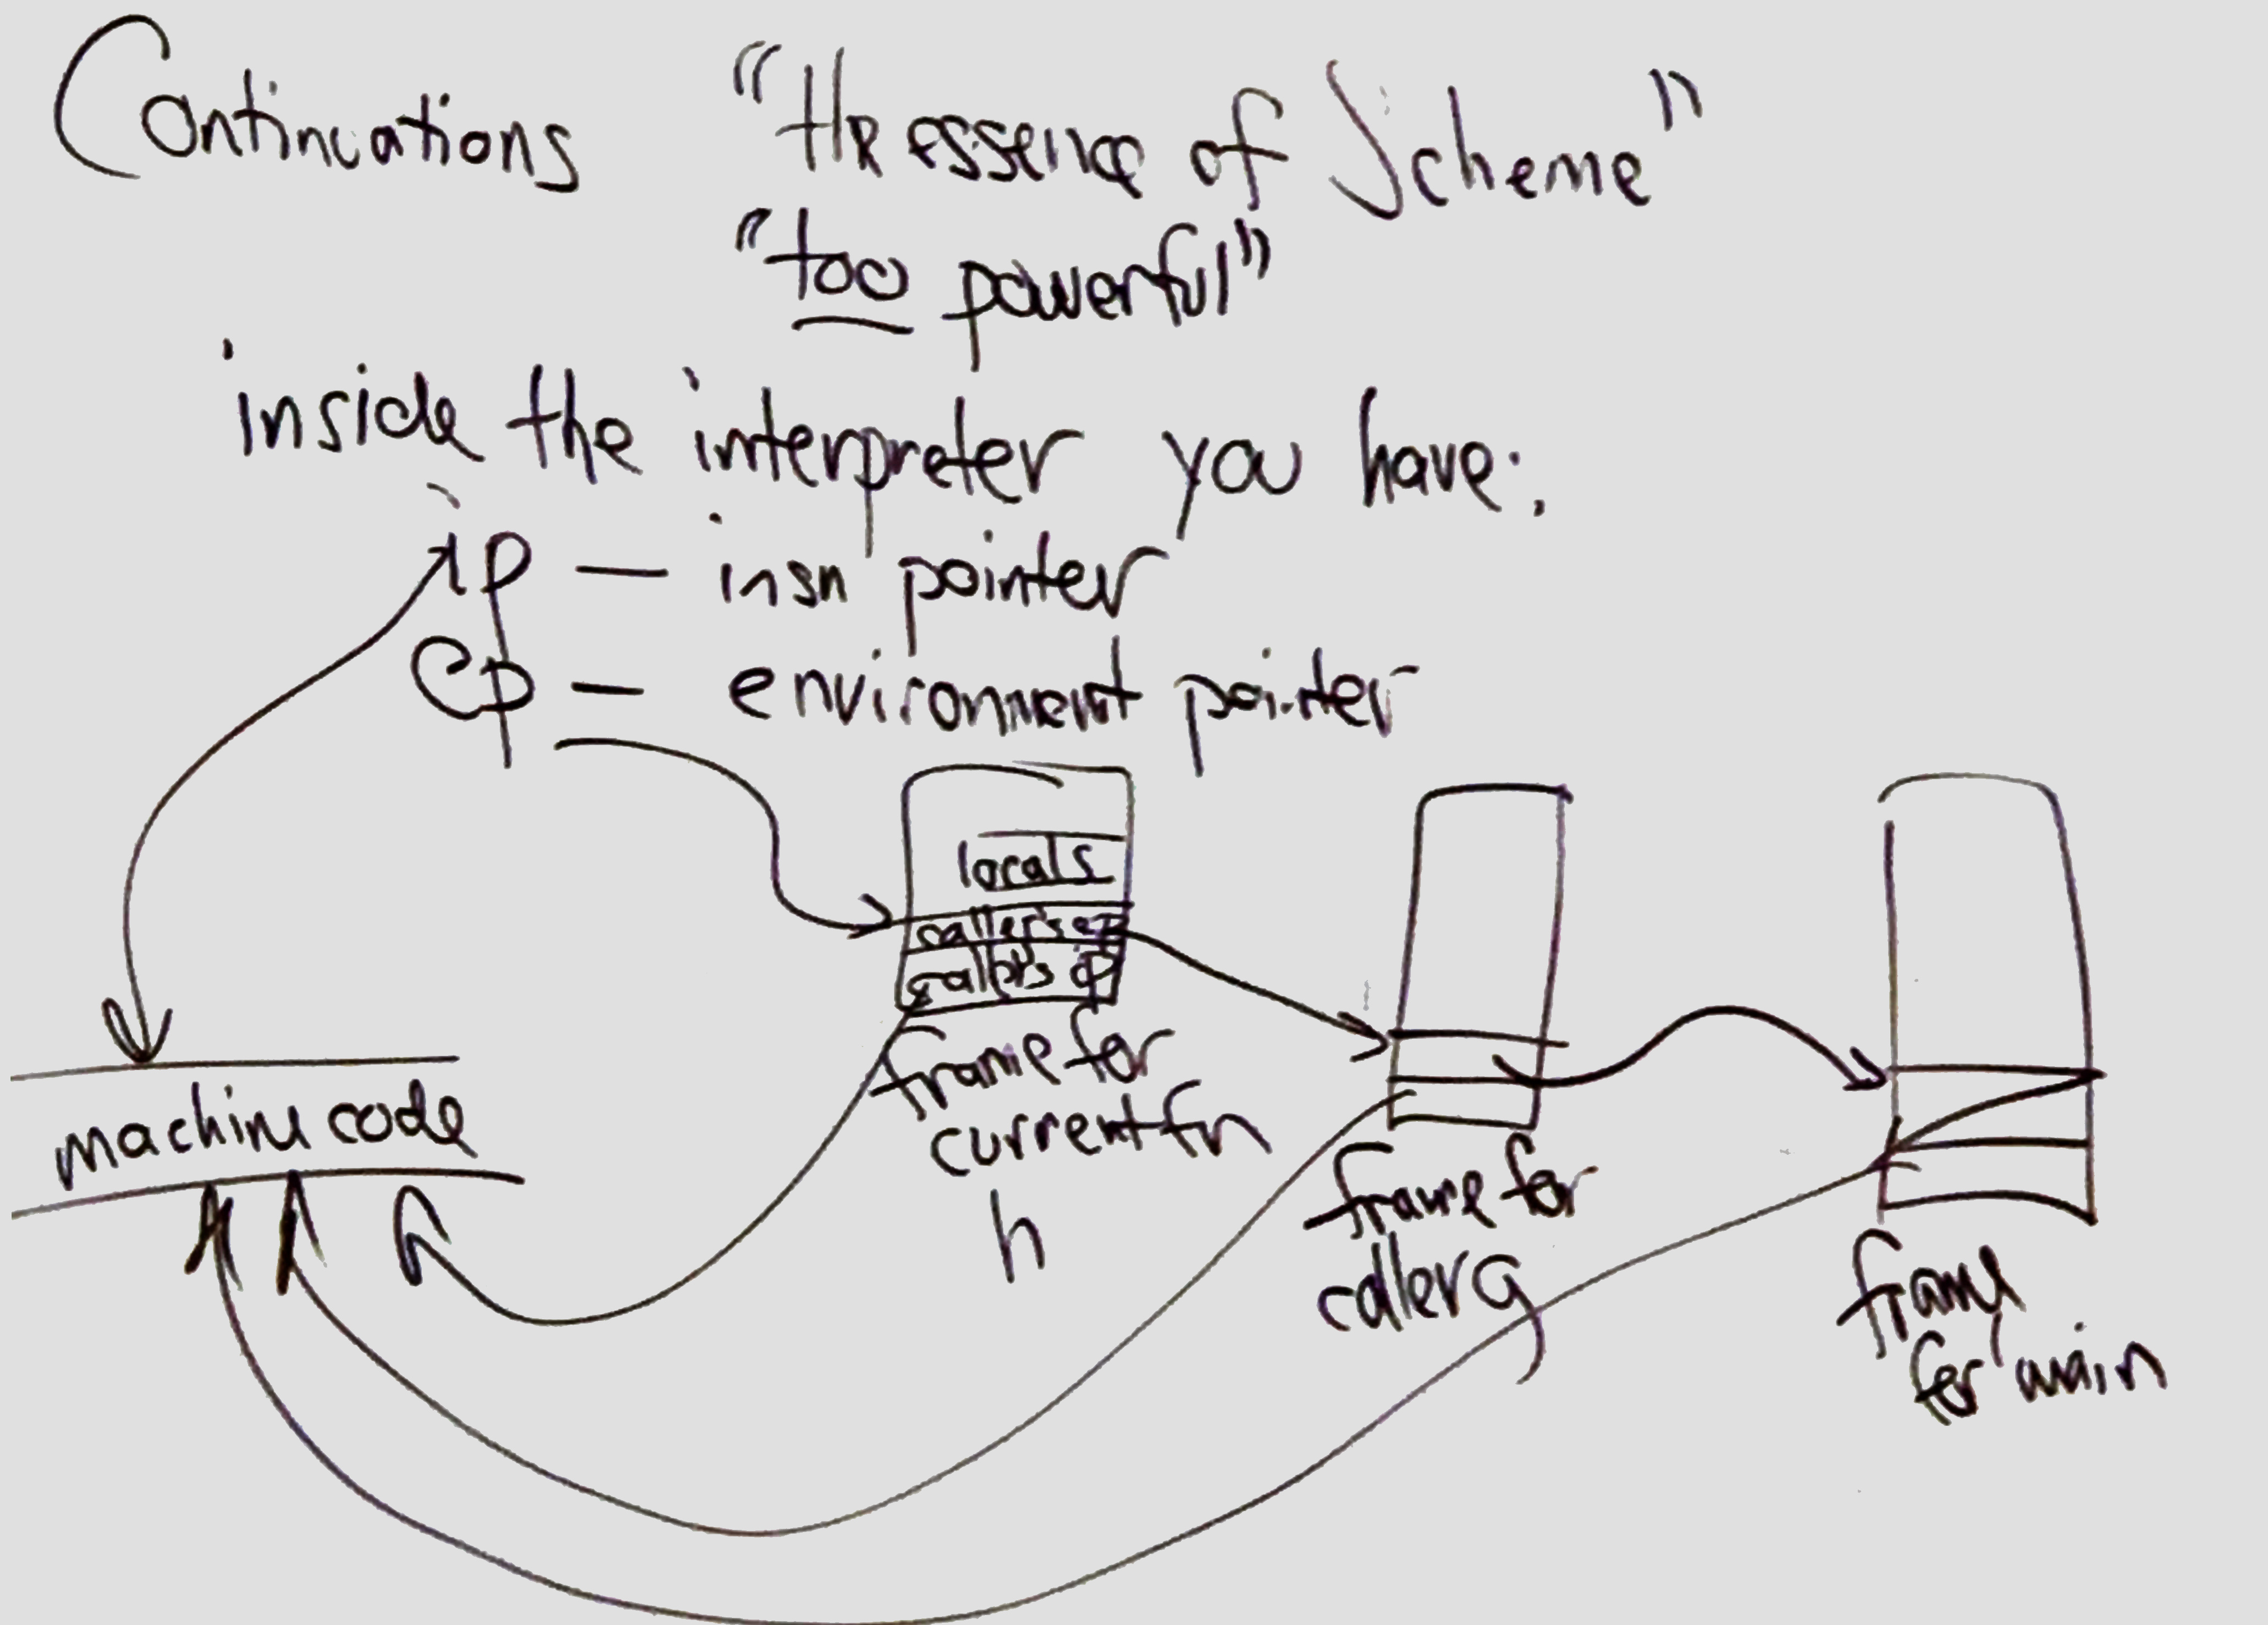 Continuations "the essence of Scheme"
"too powerful"
inside the interpreter you have:
ip — insn pointer
ep — environment pointer
locals
caller's ep
caller's ip
machine code
frame for
current fn
h
frame for
caller g
frame
for main